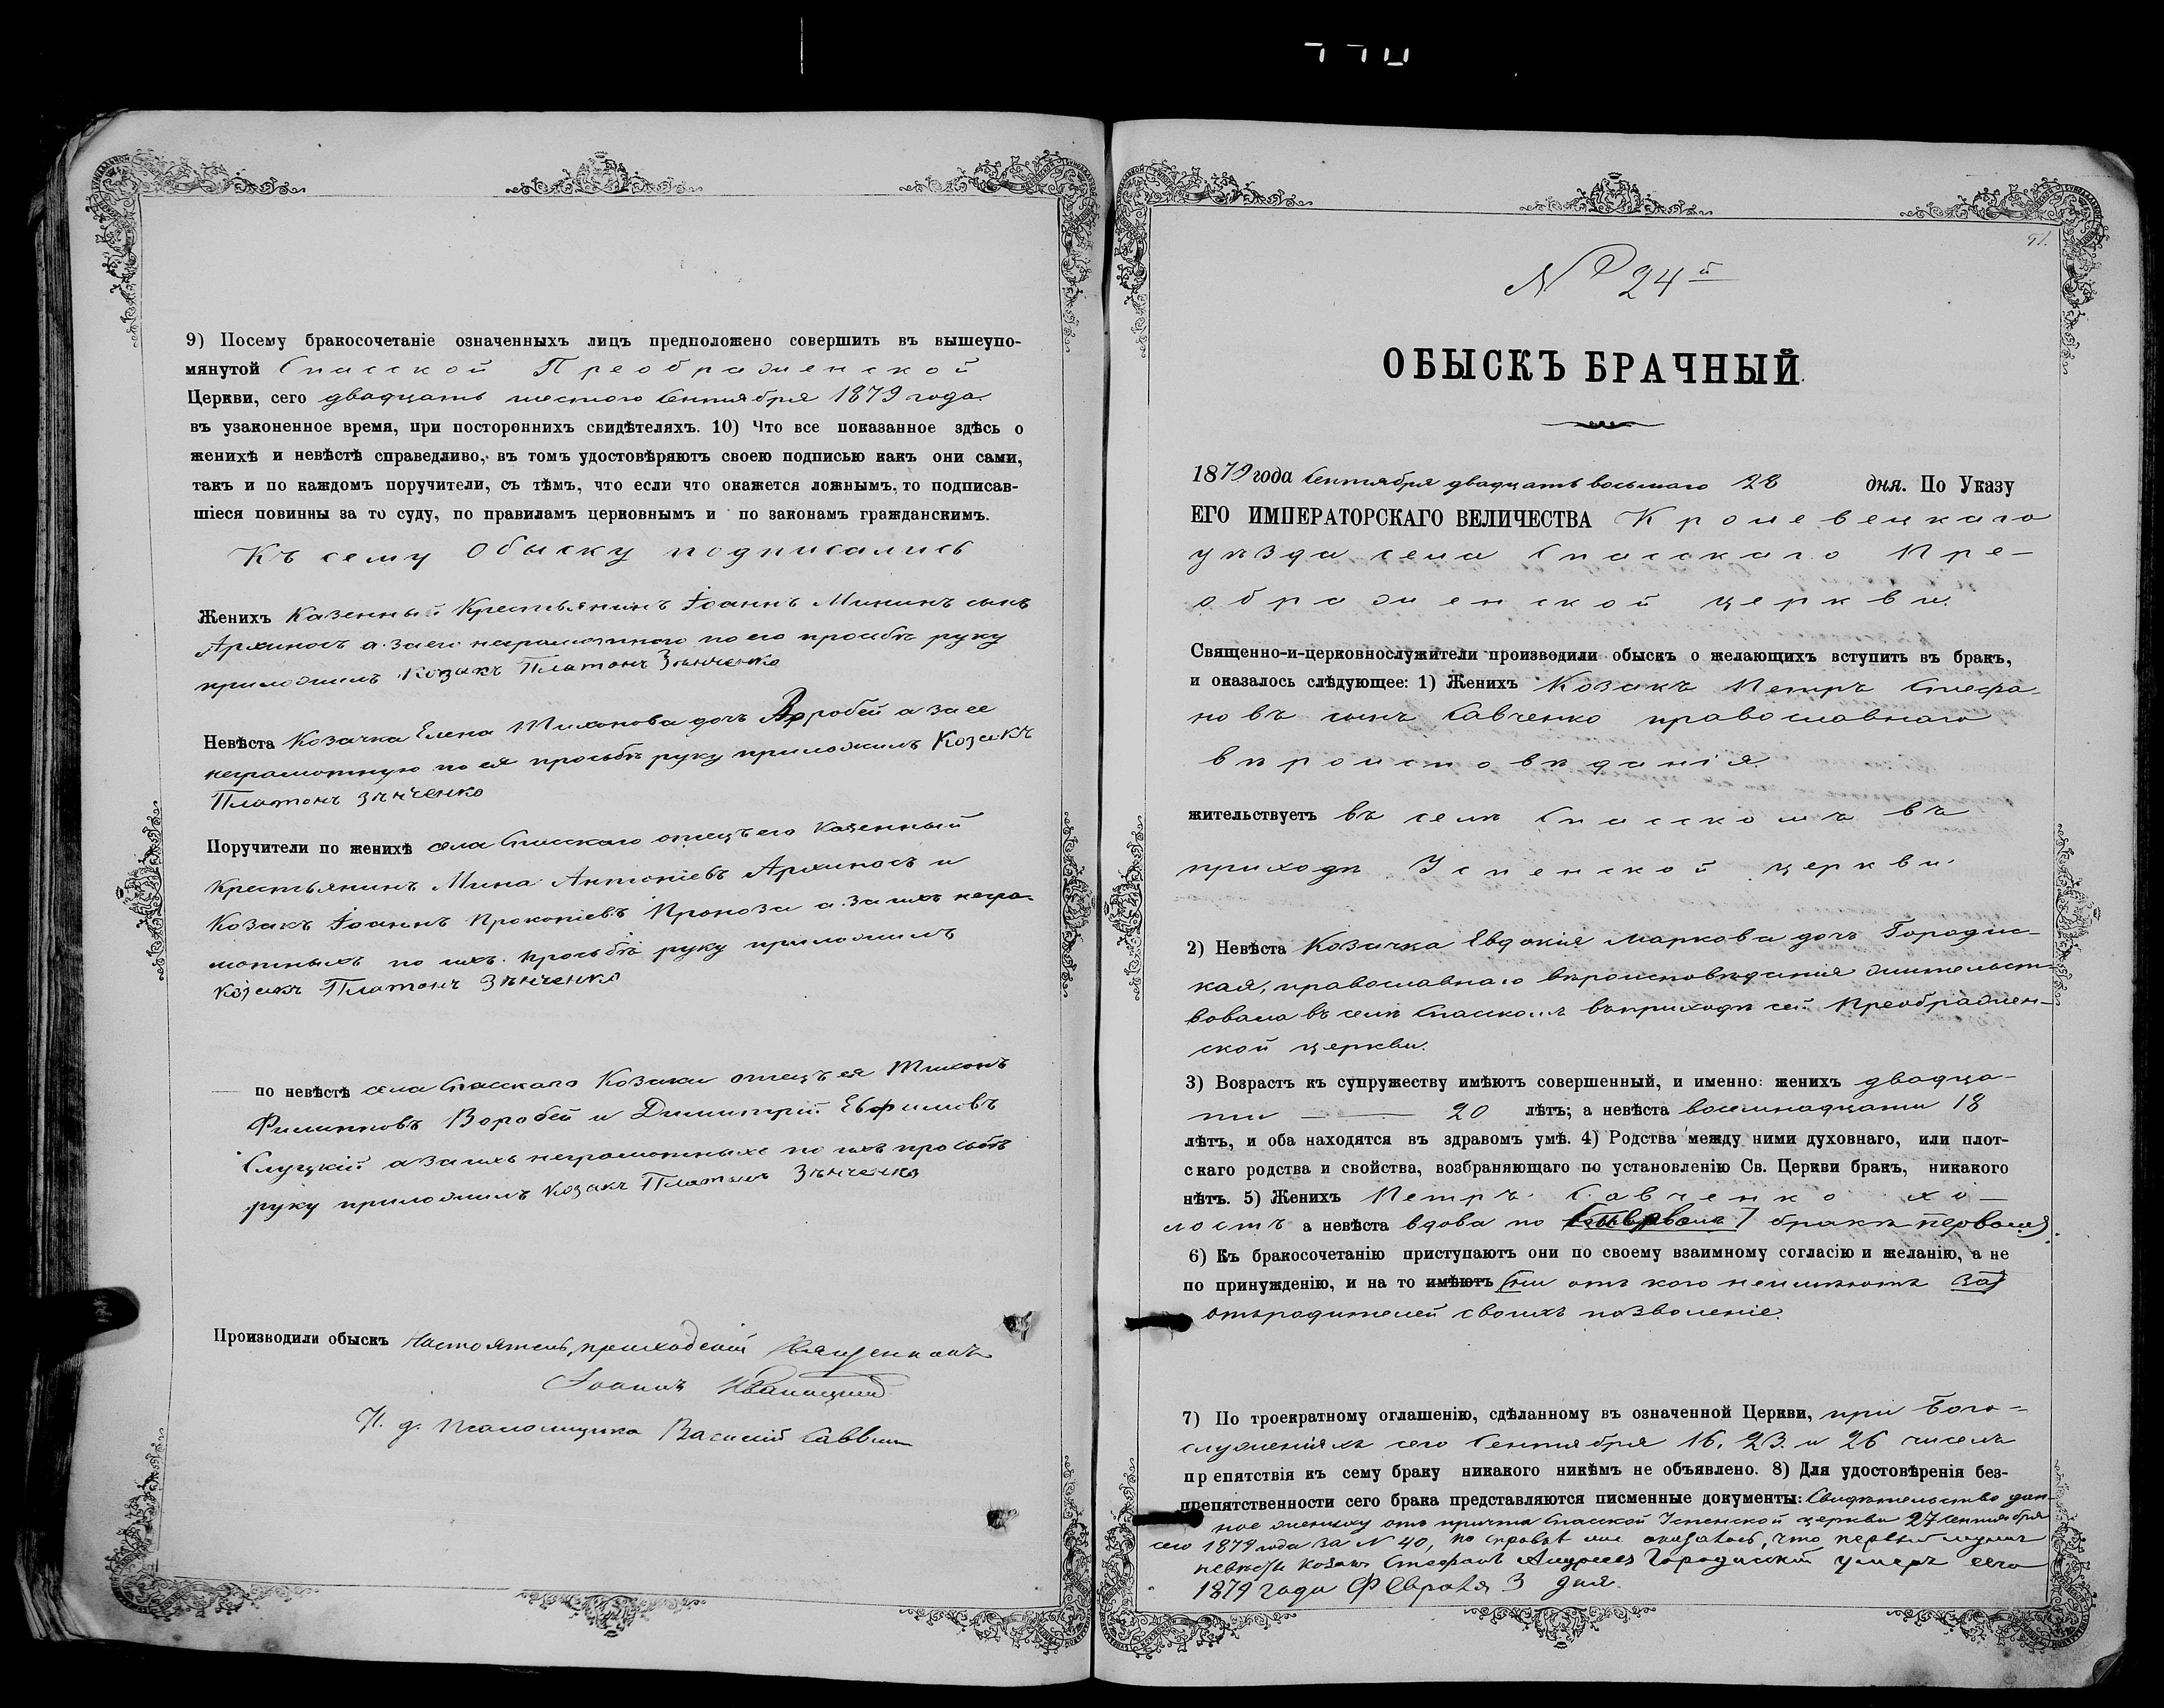 9) Посему бракосочетаніе означенныхъ лицъ предположено совершить въ вышеупо-
мянутой Спасской Преображенской
Церкви, сего двадцать шестого Сентября 1879 года.
въ узаконенное время, при постороннихъ свидѣтеляхъ. 10) Что все показанное здѣсь о
женихѣ и невѣстѣ справедливо, въ томъ удостовѣряютъ своею подписью какъ они сами,
такъ и по каждомъ поручители, съ тѣмъ, что если что окажется ложнымъ, то подписав-
шіеся повинны за то суду, по правиламъ церковнымъ и по законамъ гражданскимъ.
Къ сему Обыску подписались
Женихъ Казенный Крестьянинъ Іоаннъ Мининъ сынъ
Архипось а за его неграмотного по его прозьбѣ руку
приложилъ Козакъ Платонъ Зѣнченко
Невѣста Козачка Елена Тихонова дочь Воробей а за ее
неграмотную по ея прозьбѣ руку приложилъ Козакъ
Платонъ Зѣнченко
Поручители по женихѣ села Спасскаго отецъ его Казенный
Крестьянинъ Мина Антоніевъ Архипось и
Козакъ Іоаннъ Прокопіевъ Проноза а за ихъ негра-
мотныхъ по ихъ прозьбѣ руку приложилъ
Козакъ Платонъ Зѣнченко
по невѣстѣ села Спасскаго Козаки отецъ ея Тихонъ
Филипповъ Воробей и Димитрій Евфимовъ
Слуцкій а за ихъ неграмотныхъ по ихъ прозьбѣ
руку приложилъ Козакъ Платонъ Зѣнченко
Производили обыскъ Настоятель, приходскій Священникъ
Іоаннъ
И. д. псаломщика Василій Саввин
91.
№ 24й
ОБЫСКЪ БРАЧНЫЙ.
1879 года Сентября двадцать восьмаго 28 дня. По Указу
ЕГО ИМПЕРАТОРСКАГО ВЕЛИЧЕСТВА Кролевецкаго
уѣзда села Спасскаго Пре-
ображенской церкви.
Священно-и-церковнослужители производили обыскъ о желающихъ вступить въ бракъ,
и оказалось слѣдующее: 1) Женихъ Козакъ Петръ Стефа-
новъ сынъ Савченко православнаго
вѣроисповѣданія.
жительствуетъ въ селѣ Спасскомъ въ
приходѣ Успенской церкви.
2) Невѣста Козачка Евдокія Маркова дочь Городис-
кая, православнаго вѣроисповѣданія жительст-
вовала въ селѣ Спасскомъ въ приходѣ сей Преображен-
ской церкви.
3) Возрастъ къ супружеству имѣютъ совершенный, и именно: женихъ двадца-
ти 20 лѣтъ; а невѣста восемнадцати 18
лѣтъ, и оба находятся въ здравомъ умѣ. 4) Родства между ними духовнаго, или плот-
скаго родства и свойства, возбраняющаго по установленію Св. Церкви бракъ, никакого
нѣтъ. 5) Женихъ Петръ Савченко хо-
лостъ а невѣста вдова по бракѣ первомъ
6) Къ бракосочетанію приступаютъ они по своему взаимному согласію и желанію, а не
по принужденію, и на то имѣютъ (ни отъ кого неимѣютъ за)
отъ родителей своихъ позволеніе.
7) По троекратному оглашенію, сдѣланному въ означенной Церкви, при Бого-
служеніяхъ сего Сентября 16. 23. и 26 чиселъ
препятствія къ сему браку никакого никѣмъ не объявлено. 8) Для удостовѣренія без-
препятственности сего брака представляются писменные документы: Свидѣтельство дан-
ное жениху отъ причта Спасской Успенской церкви 27 Сентября
сего 1879 года за № 40, по справкѣ же оказалось, что первый мужъ
невѣсты Козакъ Стефанъ Андреевъ Городискій умеръ сего
1879 года Февраля 3 дня.